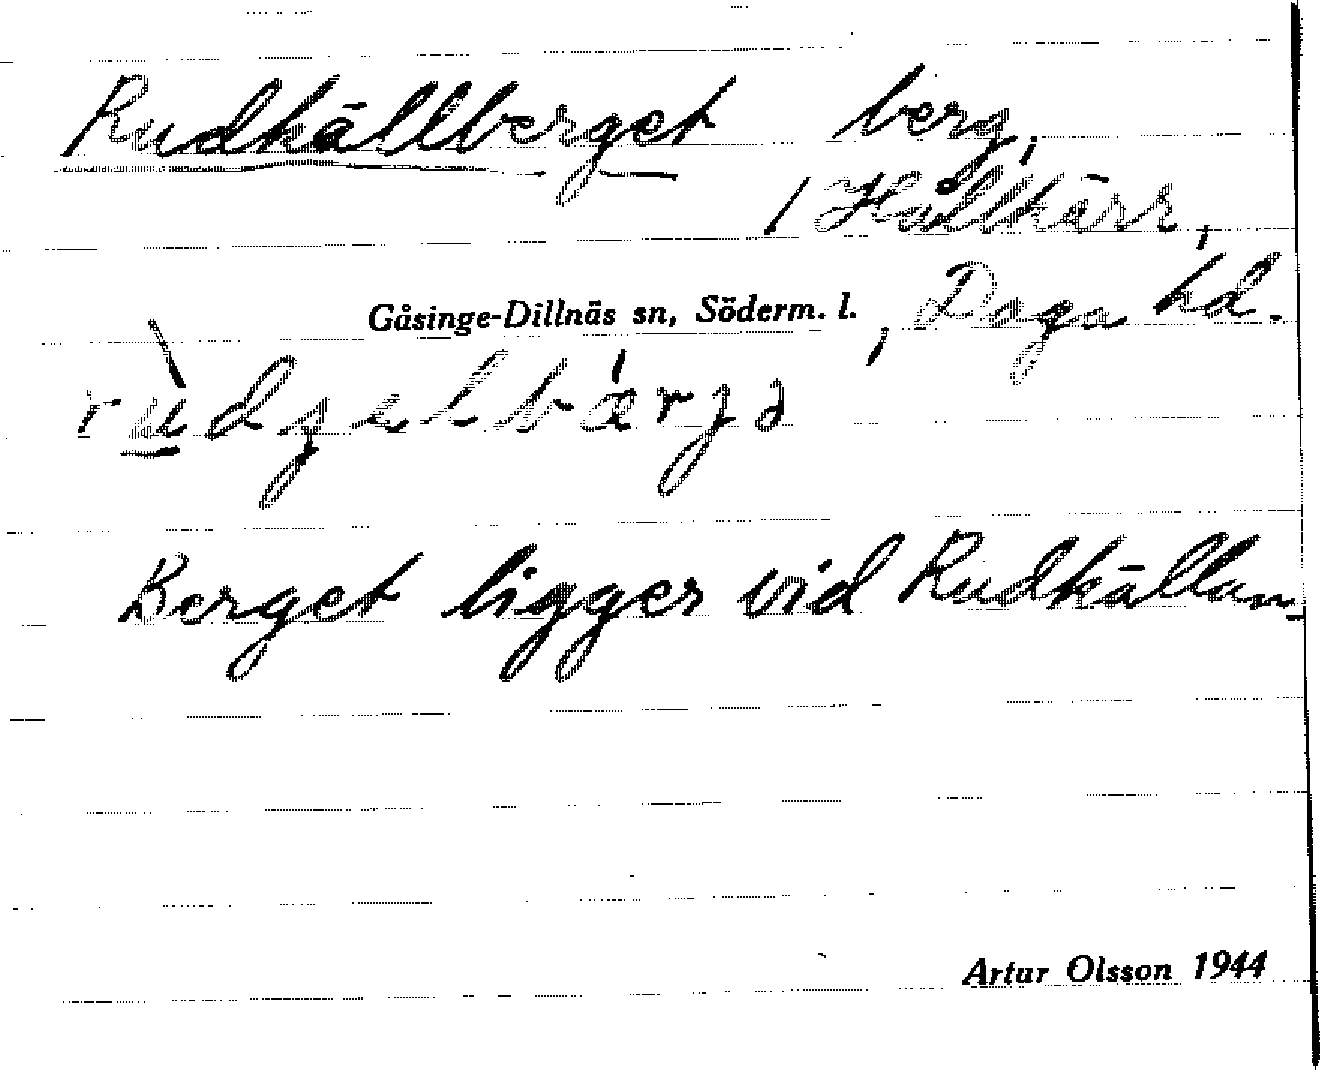 Rudkällberget berg,
/ Hålkärr,
Gåsinge-Dillnäs sn, Söderm. l., Daga hd.
Berget ligger vid Rudkällan
Artur Olsson 1944